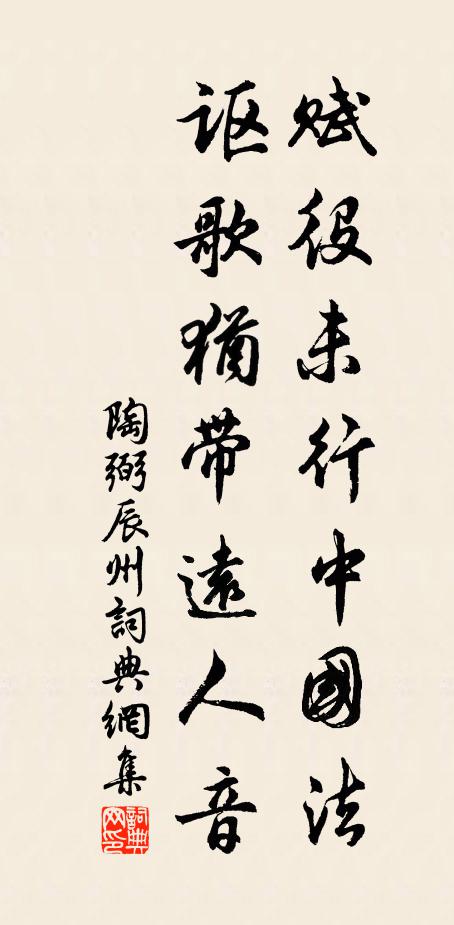 赋役未行中國法
讴歌猶带遠人音
陶弼辰州詞典網集
詞典网印